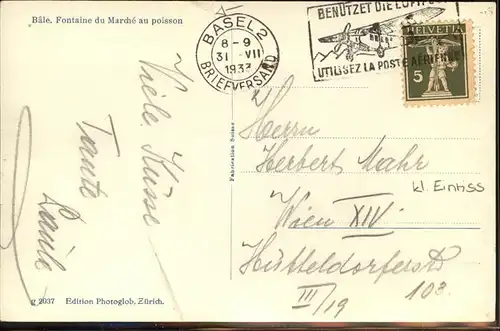 Bâle. Fontaine du Marché au poisson
BASEL 2
8-9
31. VII
1933
BRIEFVERSAND
BENÜTZET DIE LUFTPOST
UTILISEZ LA POSTE AÉRIENNE
HELVETIA
5
Viele Küsse
Tante
Herrn
Herbert Mahr
Wien XIV.
Hütteldorferstr
103.
III/19
kl. Einriss
Fabrication Suisse
g 2037 Edition Photoglob, Zürich.